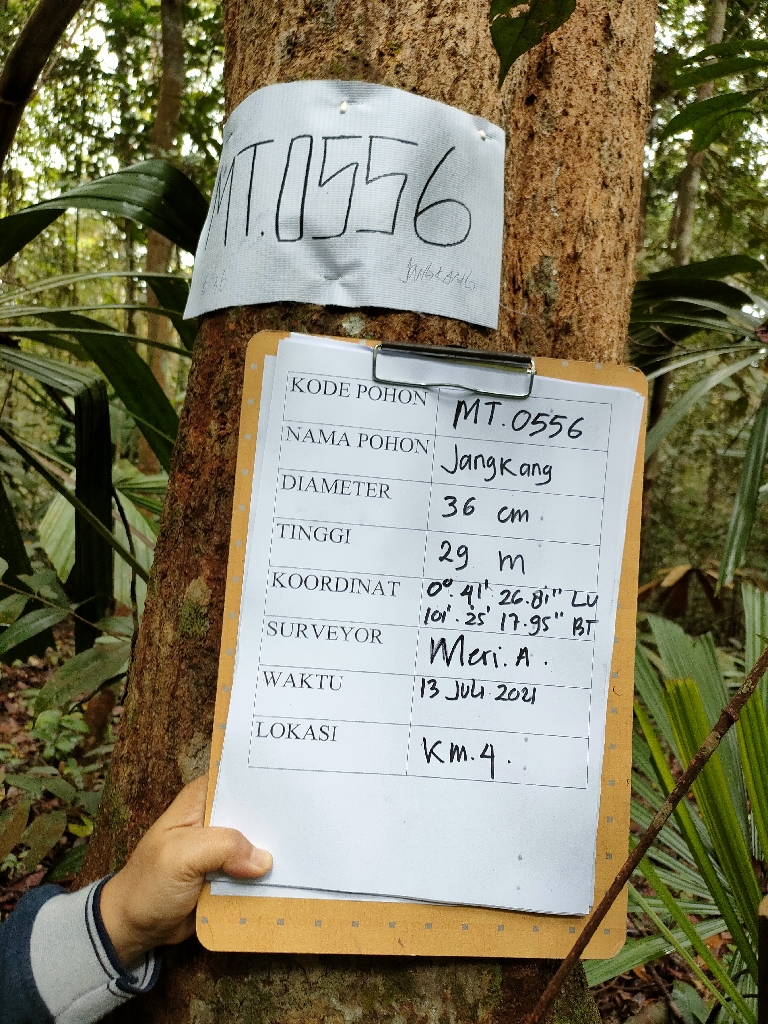 MT.0556
Jangkang
KODE POHON MT.0556
NAMA POHON Jangkang
DIAMETER 36 cm.
TINGGI 29 m
KOORDINAT 0°. 41' 26.81" LU
101'. 25' 17.95" BT
SURVEYOR Meri. A.
WAKTU 13 Juli 2021
LOKASI Km. 4.